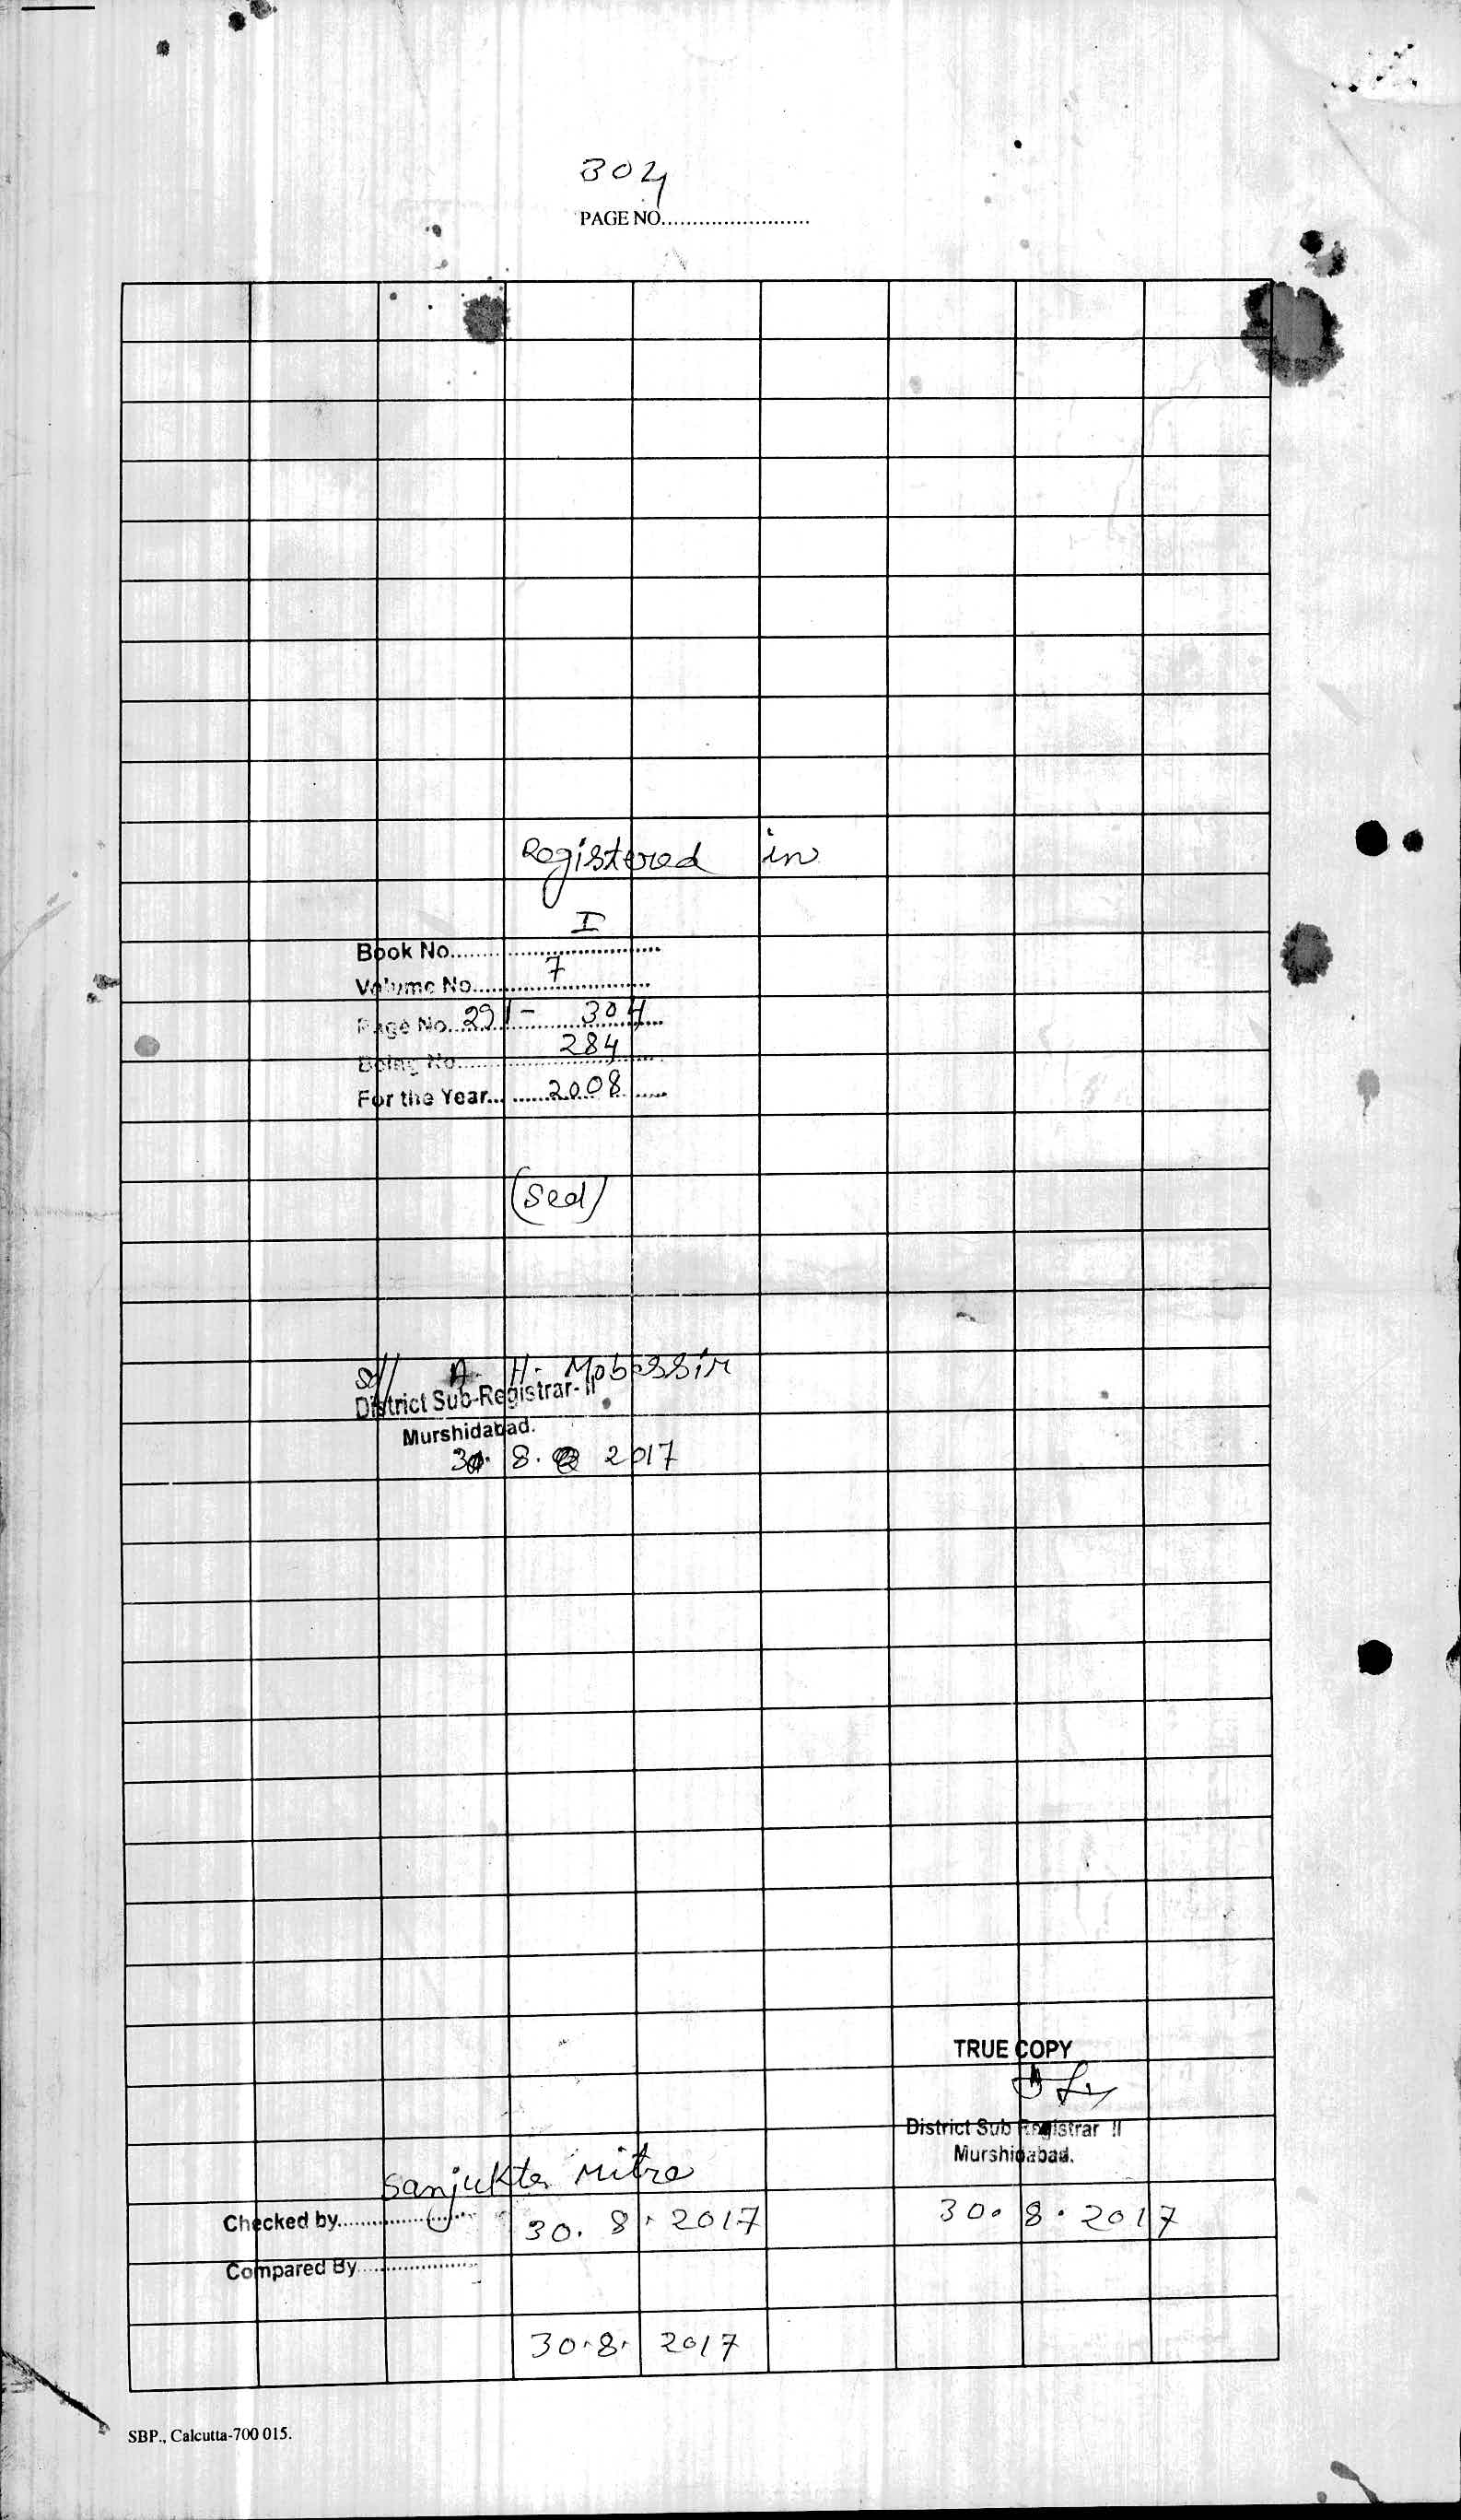 304
PAGE NO.........................
Registered in
Book No.......I.......
Volume No.......7.......
Page No. 291 - 304
Being No. 284
For the Year... 2008 ......
(Seal)
Sd/ A. H. Mobassir
District Sub-Registrar-II
Murshidabad.
8. 2017
TRUE COPY
District Sub Registrar II
Murshidabad.
Sanjukta Mitra
Checked by.................. 30. 8. 2017
30. 8. 2017
Compared By..................
30.8. 2017
SBP., Calcutta-700 015.